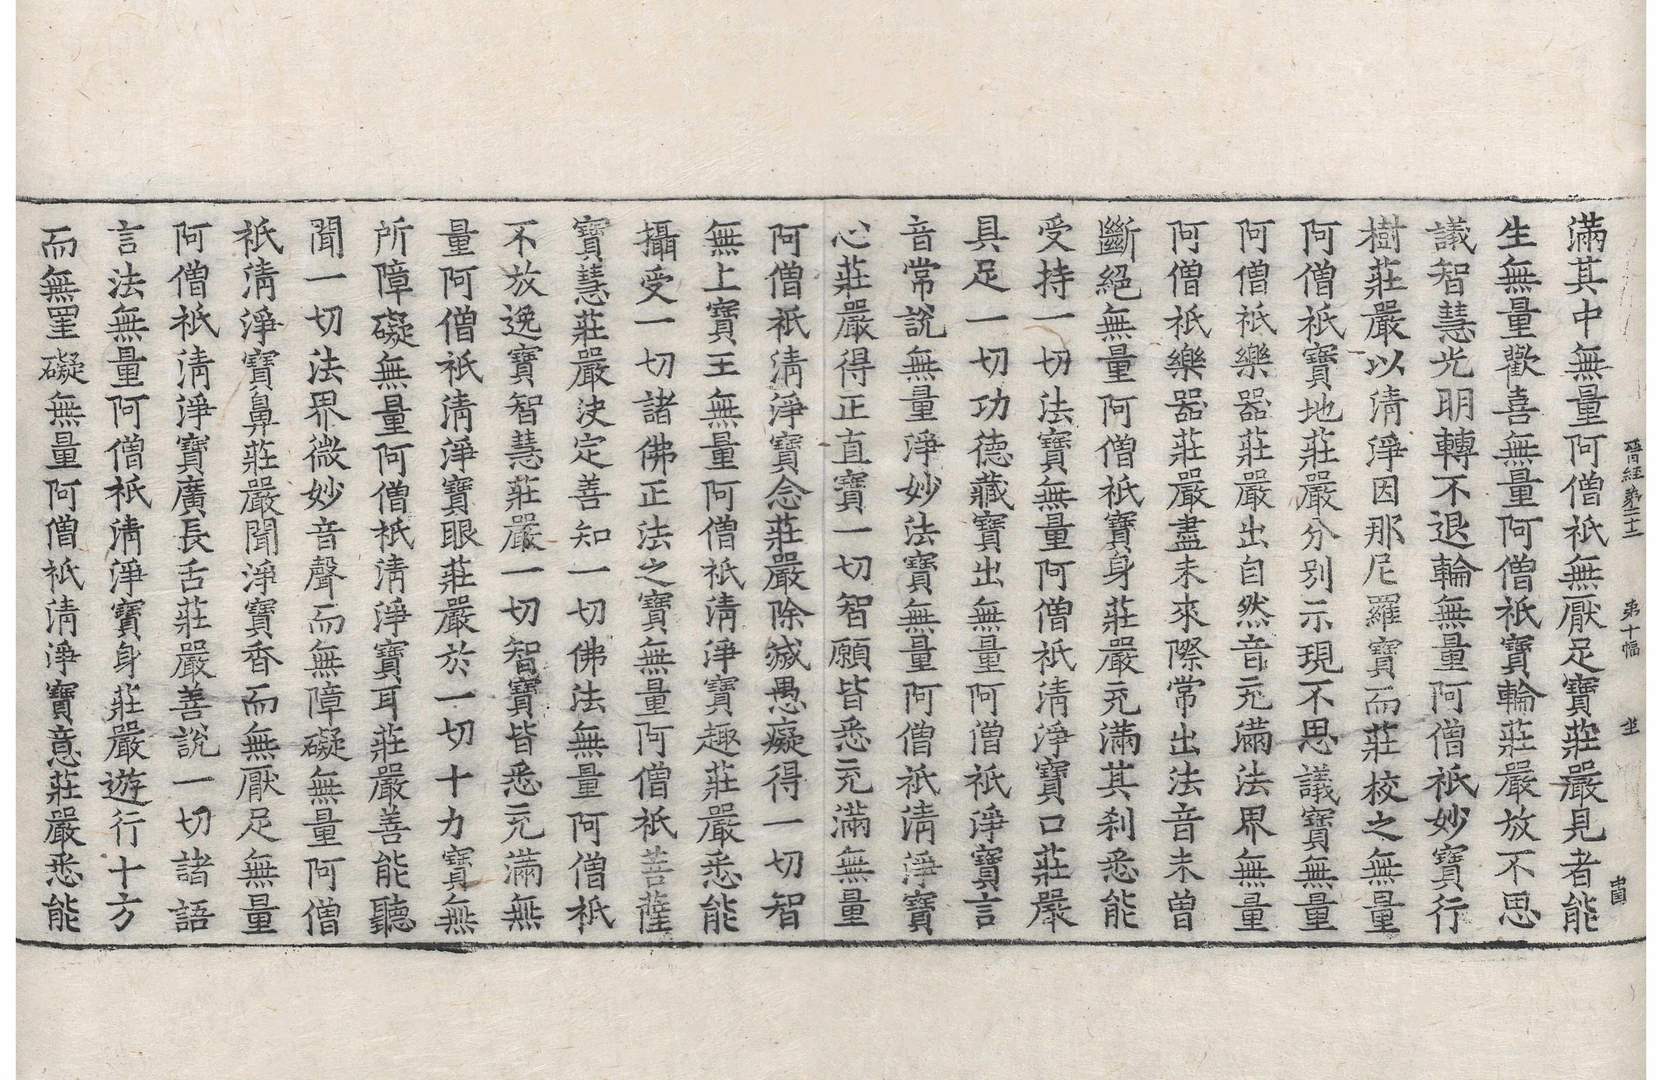 晋經第二十二 第十幅 坐
滿其中無量阿僧祇無厭足寶莊嚴見者能
生無量歡喜無量阿僧祇寶輪莊嚴放不思
議智慧光明轉不退輪無量阿僧祇妙寶行
樹莊嚴以清淨因那尼羅寶而莊校之無量
阿僧祇寶地莊嚴分別示現不思議寶無量
阿僧祇樂器莊嚴出自然音充滿法界無量
阿僧祇樂器莊嚴盡未來際常出法音未曾
斷絕無量阿僧祇寶身莊嚴充滿其刹悉能
受持一切法寶無量阿僧祇清淨寶口莊嚴
具足一切功德藏寶出無量阿僧祇淨寶言
音常說無量淨妙法寶無量阿僧祇清淨寶
心莊嚴得正直寶一切智願皆悉充滿無量
阿僧祇清淨寶念莊嚴除滅愚癡得一切智
無上寶王無量阿僧祇清淨寶趣莊嚴悉能
攝受一切諸佛正法之寶無量阿僧祇菩薩
寶慧莊嚴決定善知一切佛法無量阿僧祇
不放逸寶智慧莊嚴一切智寶皆悉充滿無
量阿僧祇清淨寶眼莊嚴於一切十力寶無
所障礙無量阿僧祇清淨寶耳莊嚴善能聽
聞一切法界微妙音聲而無障礙無量阿僧
祇清淨寶鼻莊嚴聞淨寶香而無厭足無量
阿僧祇清淨寶廣長舌莊嚴善說一切諸語
言法無量阿僧祇清淨寶身莊嚴遊行十方
而無罣礙無量阿僧祇清淨寶意莊嚴悉能